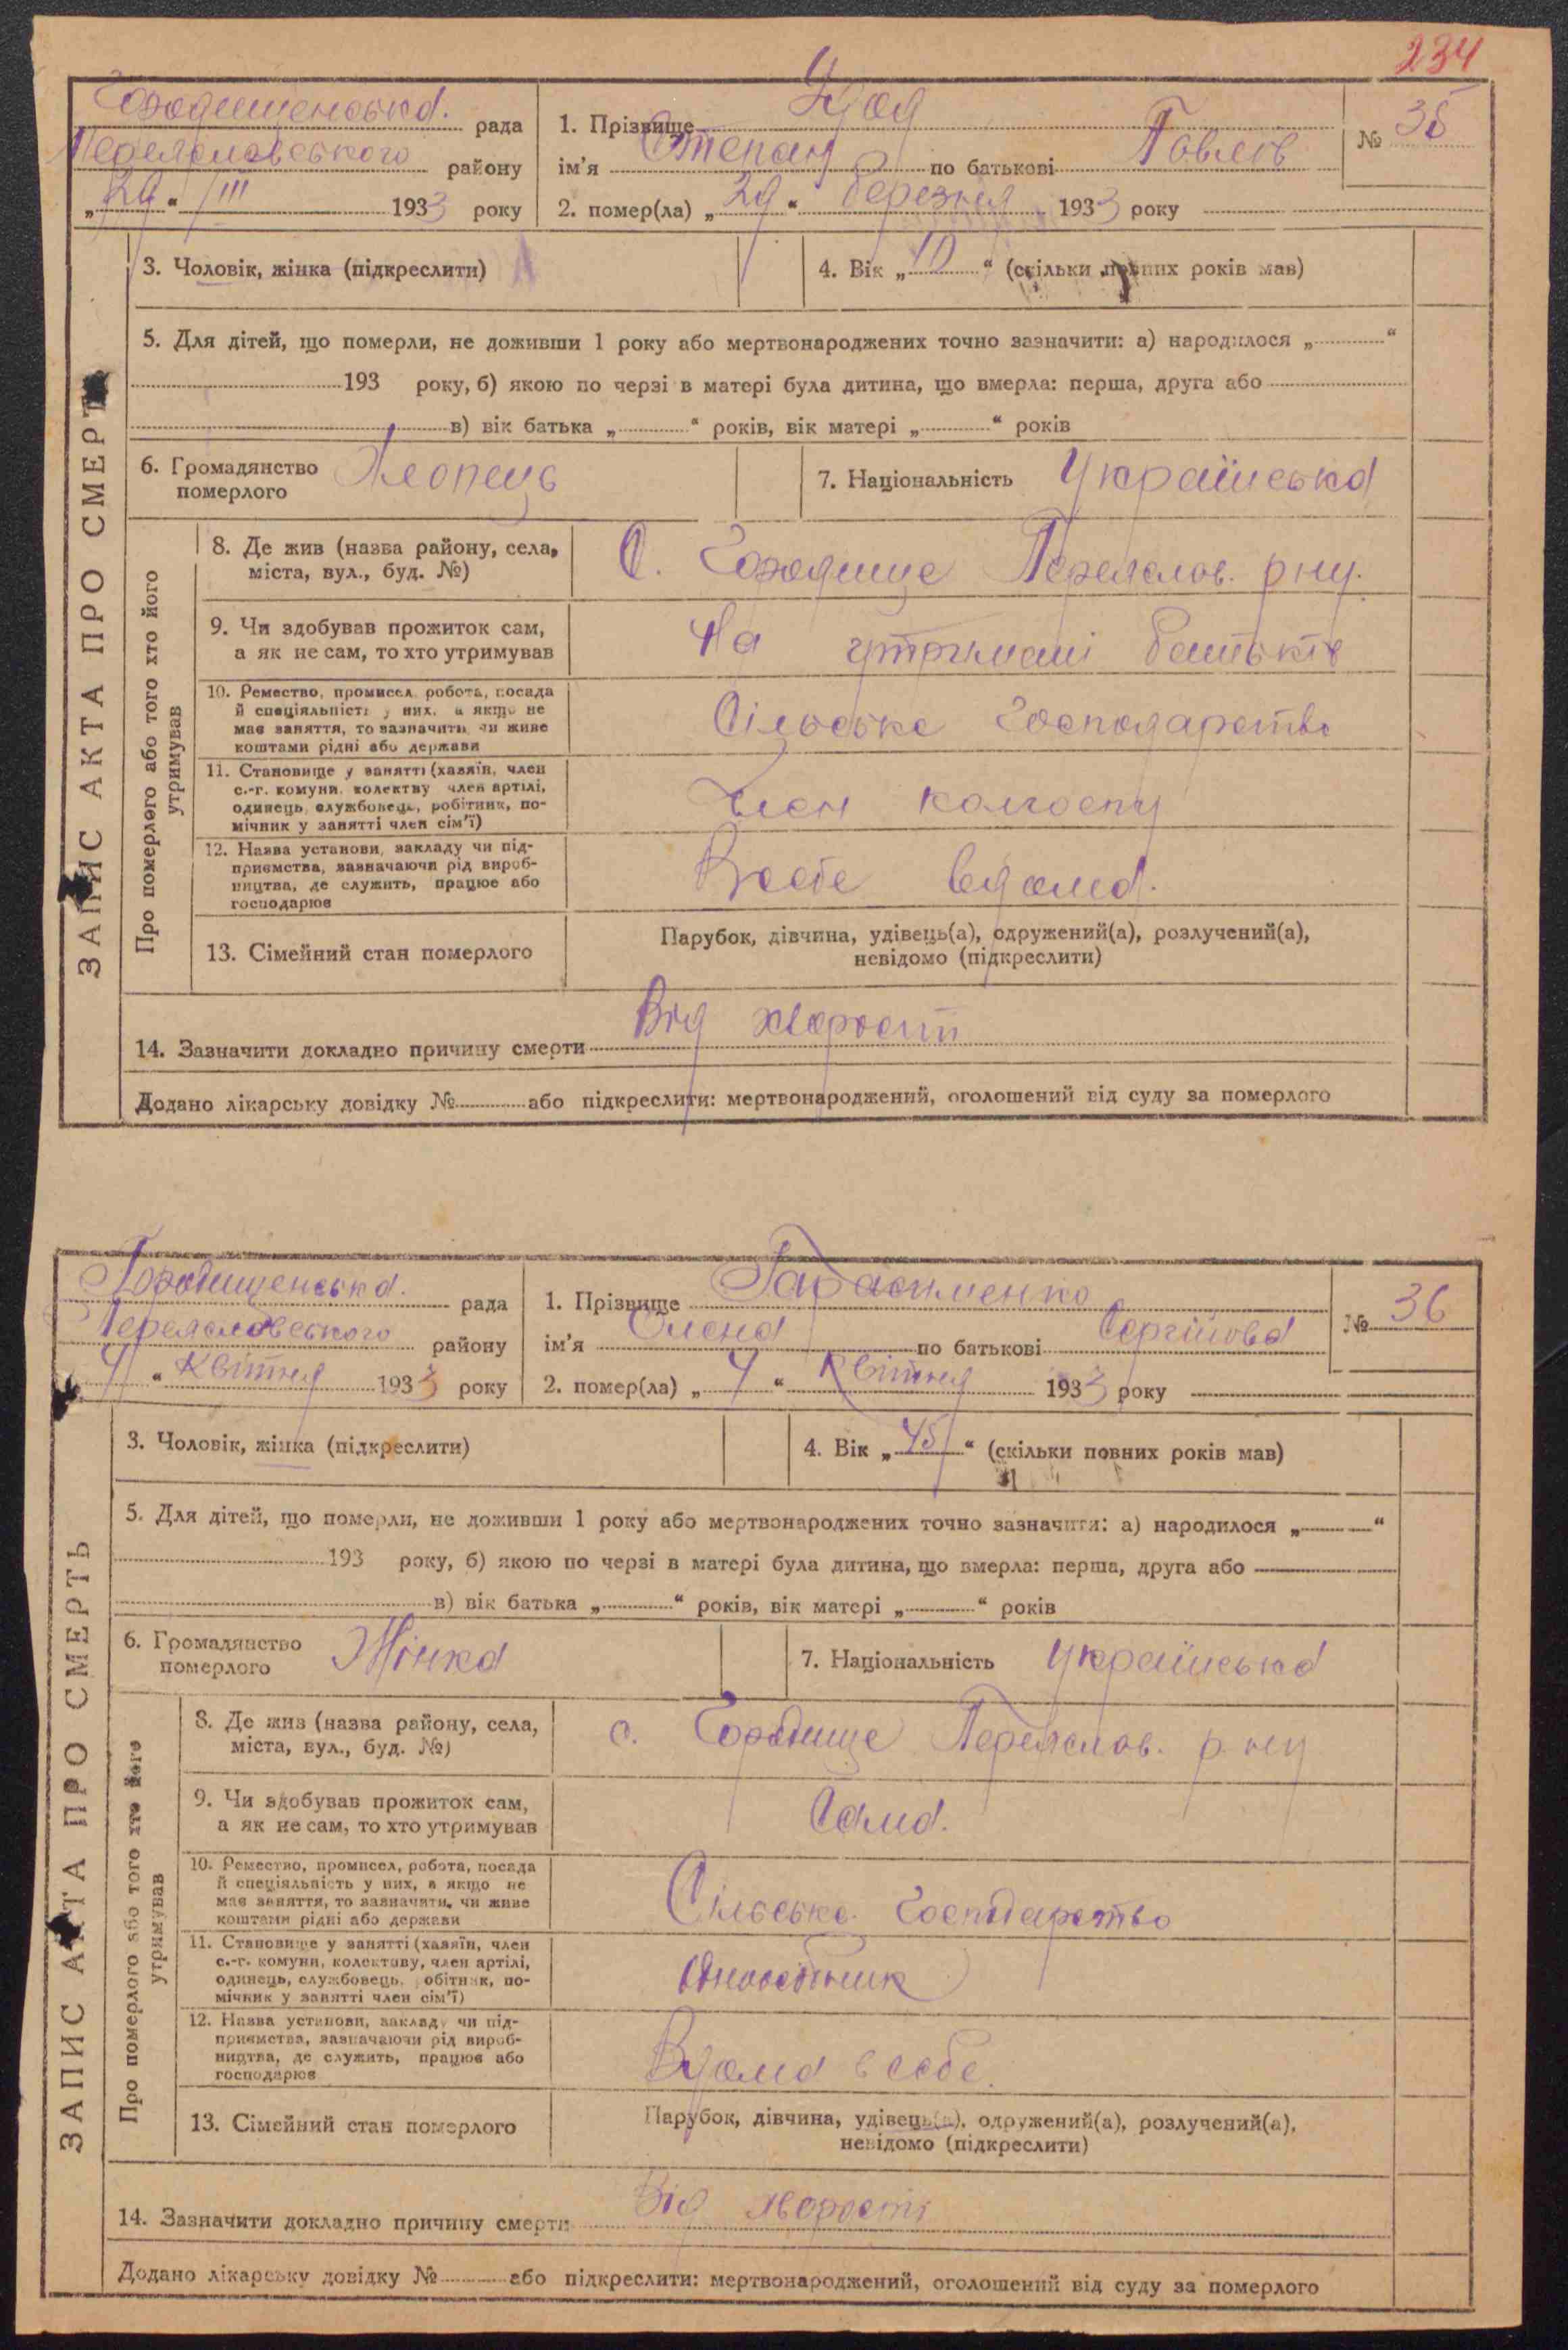 234
Городищенська. рада
Переяславського району
„29“ III 1933 року
1. Прізвище
ім'я Степан по батькові Павлов
№ 35
2. помер(ла) „29“ березня 1933 року
ЗАПИС АКТА ПРО СМЕРТЬ
3. Чоловік, жінка (підкреслити)
4. Вік „10“ (скільки повних років мав)
5. Для дітей, що померли, не доживши 1 року або мертвонароджених точно зазначити: а) народилося „ “
193 року, б) якою по черзі в матері була дитина, що вмерла: перша, друга або
в) вік батька „ “ років, вік матері „ “ років
6. Громадянство
померлого Хлопець
7. Національність Українська
Про померлого або того хто його
утримував
8. Де жив (назва району, села,
міста, вул., буд. №)
С. Городище Переяслов. р ну.
9. Чи здобував прожиток сам,
а як не сам, то хто утримував
На утримані батьків
10. Ремество, промисел, робота, посада
й спеціяльність у них, а якщо не
має заняття, то зазначити, чи живе
коштами рідні або держави
Сільське Господарство
11. Становище у занятті (хазяїн, член
с.-г. комуни, колективу, член артілі,
одинець, службовець, робітник, по-
мічник у занятті член сім'ї)
Член колгоспу
12. Назва установи, закладу чи під-
приємства, зазначаючи рід вироб-
ництва, де служить, працює або
господарює
Всебе вдома.
13. Сімейний стан померлого
Парубок, дівчина, удівець(а), одружений(а), розлучений(а),
невідомо (підкреслити)
14. Зазначити докладно причину смерти Від хворости
Додано лікарську довідку № або підкреслити: мертвонароджений, оголошений від суду за померлого
Городищенська. рада
Переясловського району
4 “ Квітня 1933 року
1. Прізвище Гарасименко
ім'я Олена по батькові Сергійова
№ 36
2. помер(ла) „4“ Квітня 1933 року
ЗАПИС АКТА ПРО СМЕРТЬ
3. Чоловік, жінка (підкреслити)
4. Вік „45“ (скільки повних років мав)
5. Для дітей, що померли, не доживши 1 року або мертвонароджених точно зазначити: а) народилося „ “
193 року, б) якою по черзі в матері була дитина, що вмерла: перша, друга або
в) вік батька „ “ років, вік матері „ “ років
6. Громадянство
померлого Жінка
7. Національність Українська
Про померлого або того хто його
утримував
8. Де жив (назва району, села,
міста, вул., буд. №)
с. Городище Переяслов. р. ну
9. Чи здобував прожиток сам,
а як не сам, то хто утримував
Сама.
10. Ремество, промисел, робота, посада
й спеціяльність у них, а якщо не
має заняття, то зазначити, чи живе
коштами рідні або держави
Сільське Господарство
11. Становище у занятті (хазяїн, член
с.-г. комуни, колективу, член артілі,
одинець, службовець, робітник, по-
мічник у занятті член сім'ї)
Одноосібник
12. Назва установи, закладу чи під-
приємства, зазначаючи рід вироб-
ництва, де служить, працює або
господарює
Вдома в себе.
13. Сімейний стан померлого
Парубок, дівчина, удівець(а), одружений(а), розлучений(а),
невідомо (підкреслити)
14. Зазначити докладно причину смерти Від хворости
Додано лікарську довідку № або підкреслити: мертвонароджений, оголошений від суду за померлого